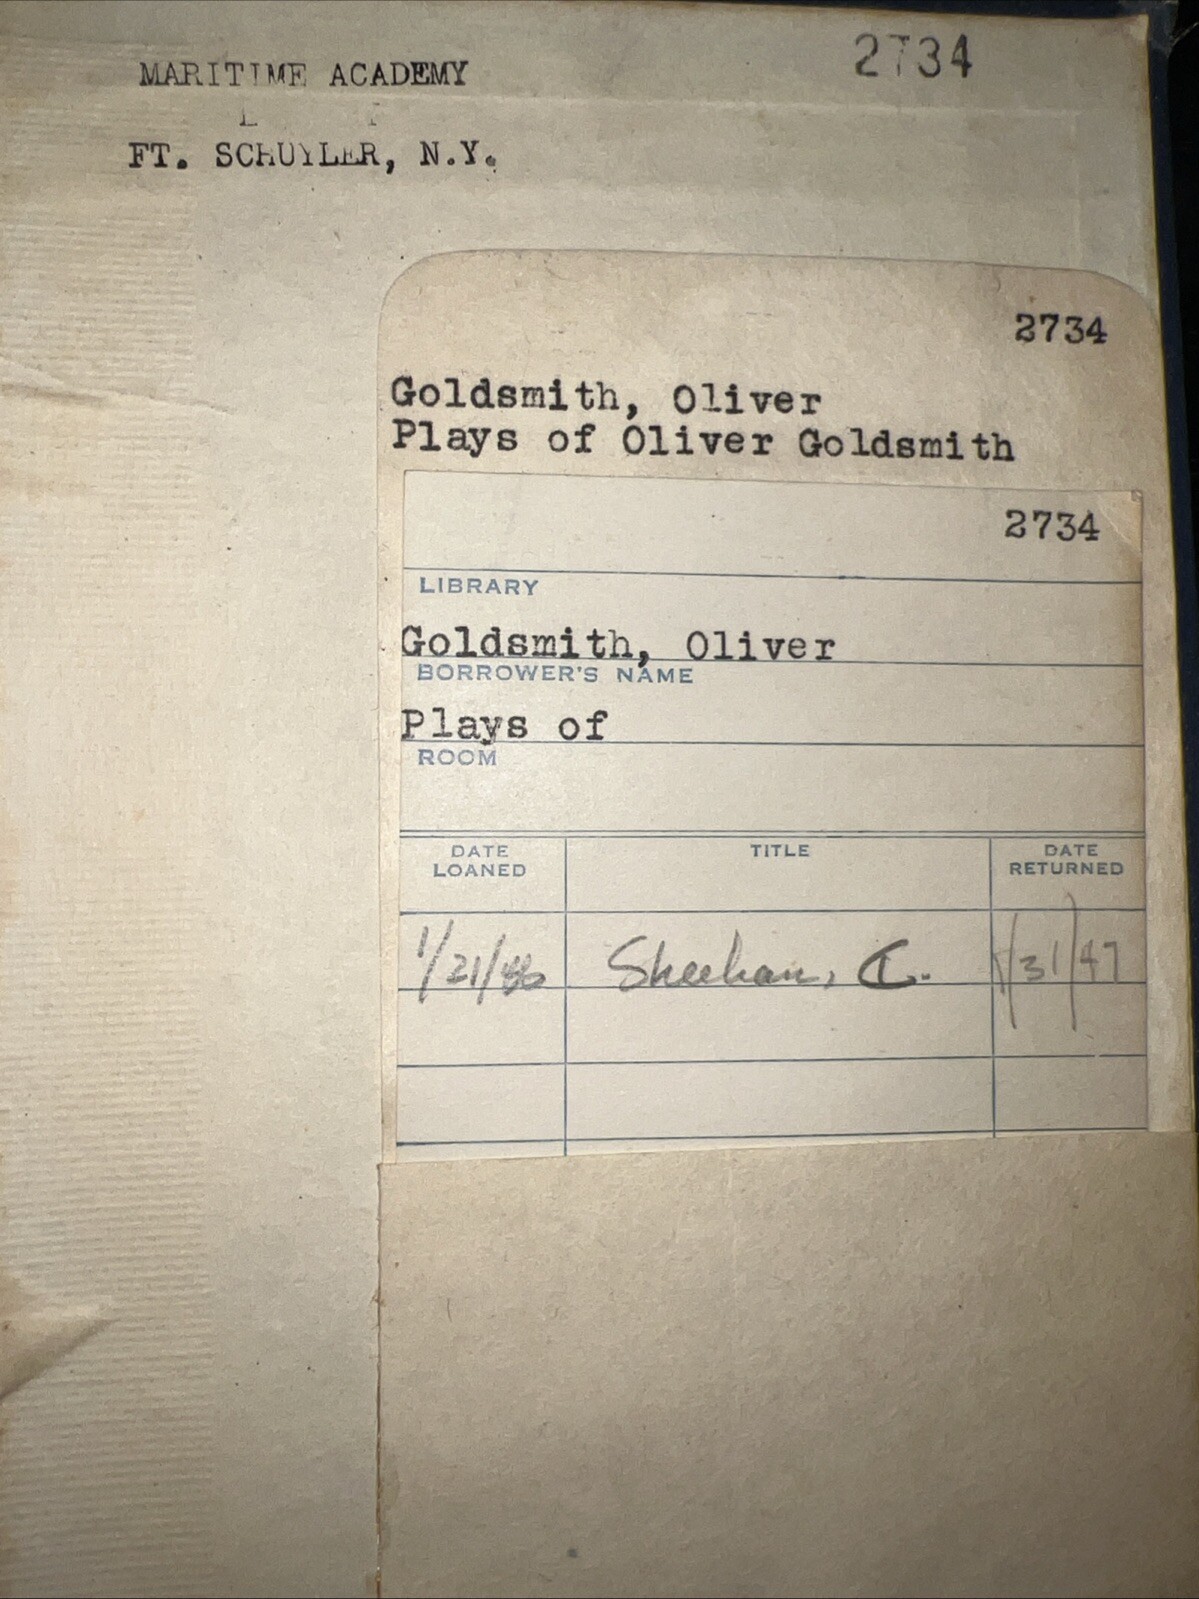 MARITIME ACADEMY
2734
FT. SCHUYLER, N.Y.
2734
Goldsmith, Oliver
Plays of Oliver Goldsmith
2734
LIBRARY
Goldsmith, Oliver
BORROWER'S NAME
Plays of
ROOM
DATE LOANED
TITLE
DATE RETURNED
1/21/46
Sheehan, C.
1/31/47